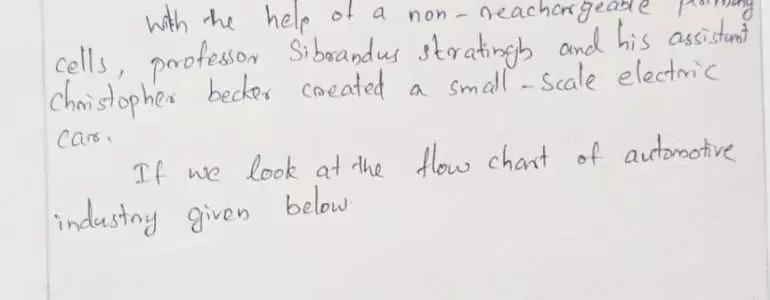 With the help of a non-reachargeable
cells, professor Sibrandus stratingh and his assistant
Christopher becker created a small-scale electric
car.
If we look at the flow chart of automotive
industry given below.